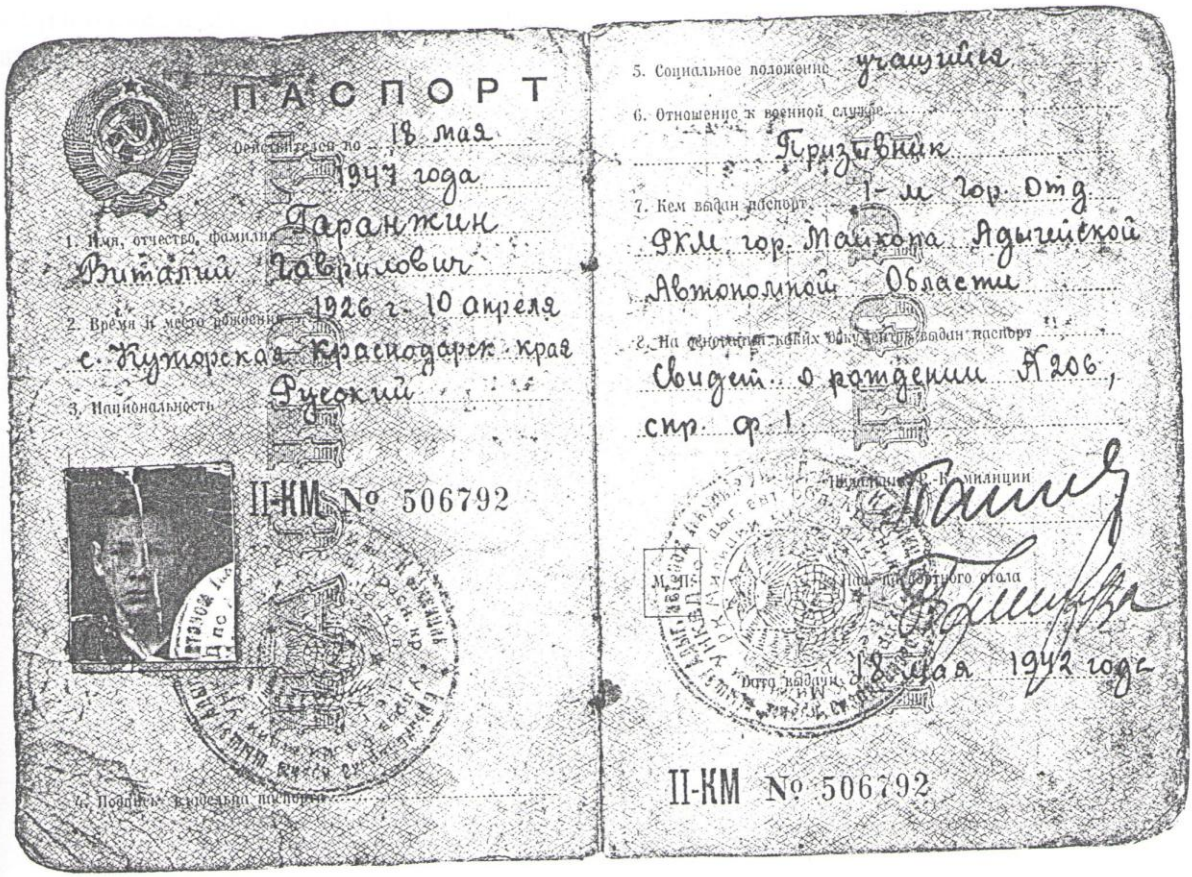 ПАСПОРТ
Действителен по 18 мая
1947 года
Гаранжин
1. Имя, отчество, фамилия
Виталий Гаврилович
1926 г. 10 апреля
2. Время и место рождения
с. Кужорская Краснодарск края
Русский
3. Национальность
II-КМ № 506792
4. Подпись владельца паспорта
5. Социальное положение учащийся
6. Отношение к военной службе
Призывник
7. Кем выдан паспорт 1-м Гор. Отд
РКМ гор. Майкопа Адыгейской
Автономной Области
8. На основании каких документов выдан паспорт
Свидет. о рождении №206,
спр. ф. 1.
Начальник Р.-К. милиции
М. П.
Нач. паспортного стола
Дата выдачи 18 мая 1942 года
II-КМ № 506792